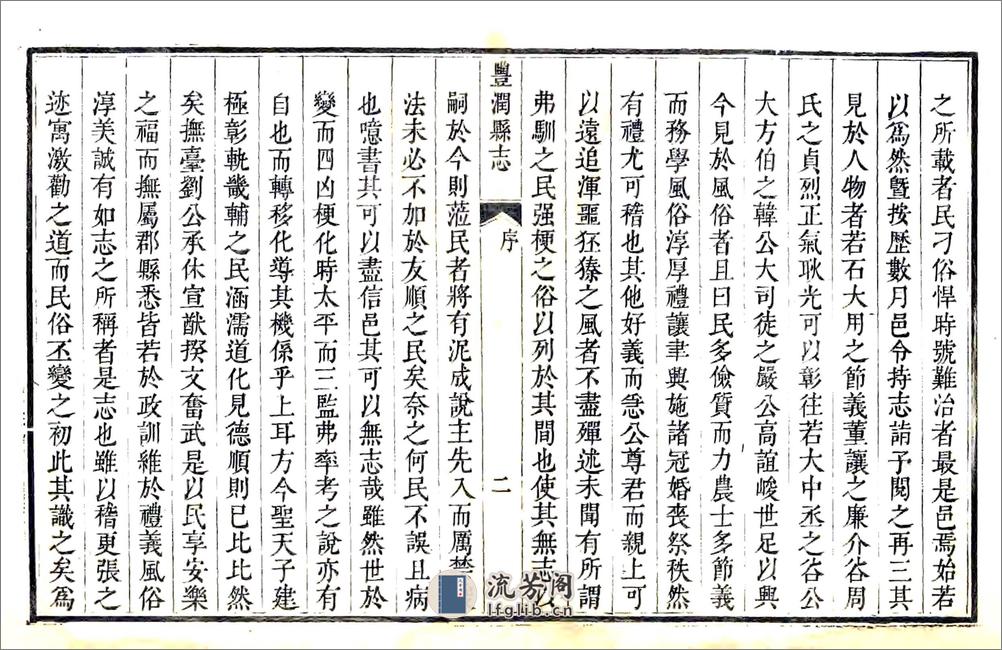 之所載者民刁俗悍時號難治者最是邑焉始若
以爲然曁按歷數月邑令持志請予閱之再三其
見於人物者若石大用之節義董讓之廉介谷周
氏之貞烈正氣耿光可以彰往若大中丞之谷公
大方伯之韓公大司徒之嚴公高誼峻世足以興
今見於風俗者且曰民多儉質而力農士多節義
而務學風俗淳厚禮讓聿興施諸冠婚喪祭秩然
有禮尤可稽也其他好義而急公尊君而親上可
以遠追渾噩狂獉之風者不盡殫述未聞有所謂
弗馴之民强梗之俗以列於其間也使其無志以
豐潤縣志
序
二
嗣於今則蒞民者將有泥成說主先入而厲禁
法未必不加於友順之民矣奈之何民不誤且病
也噫書其可以盡信邑其可以無志哉雖然世於
變而四凶梗化時太平而三監弗率考之說亦有
自也而轉移化導其機係乎上耳方今聖天子建
極彰軌畿輔之民涵濡道化見德順則已比比然
矣撫臺劉公承休宣猷揆文奮武是以民享安樂
之福而撫屬郡縣悉皆若於政訓維於禮義風俗
淳美誠有如志之所稱者是志也雖以稽更張之
迹寓激勸之道而民俗丕變之初此其識之矣爲
流芳阁
lfglib.cn